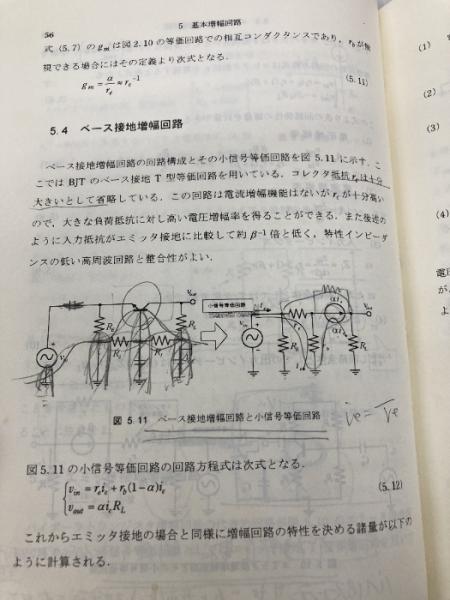 56
5 基本増幅回路
式 (5.7) の gm は図2.10 の等価回路での相互コンダクタンスであり，rbが無
視できる場合にはその定義より次式となる．
gm = α/re ≈ re⁻¹ (5.11)
5.4 ベース接地増幅回路
ベース接地増幅回路の回路構成とその小信号等価回路を図 5.11 に示す．こ
こでは BJT のベース接地 T 型等価回路を用いている．コレクタ抵抗rcは十分
大きいとして省略している．この回路は電流増幅機能はないが rc が十分高い
ので，大きな負荷抵抗に対し高い電圧増幅率を得ることができる．また後述の
ように入力抵抗がエミッタ接地に比較して約 β⁻¹ 倍と低く，特性インピーダ
ンスの低い高周波回路と整合性がよい．
小信号等価回路
図 5.11 ベース接地増幅回路と小信号等価回路
図5.11 の小信号等価回路の回路方程式は次式となる．
vin = reie + rb(1-α)ie
vout = αieRL (5.12)
これからエミッタ接地の場合と同様に増幅回路の特性を決める諸量が以下の
ように計算される．
(1)
(2)
(3)
(4)
電圧
が，
よ